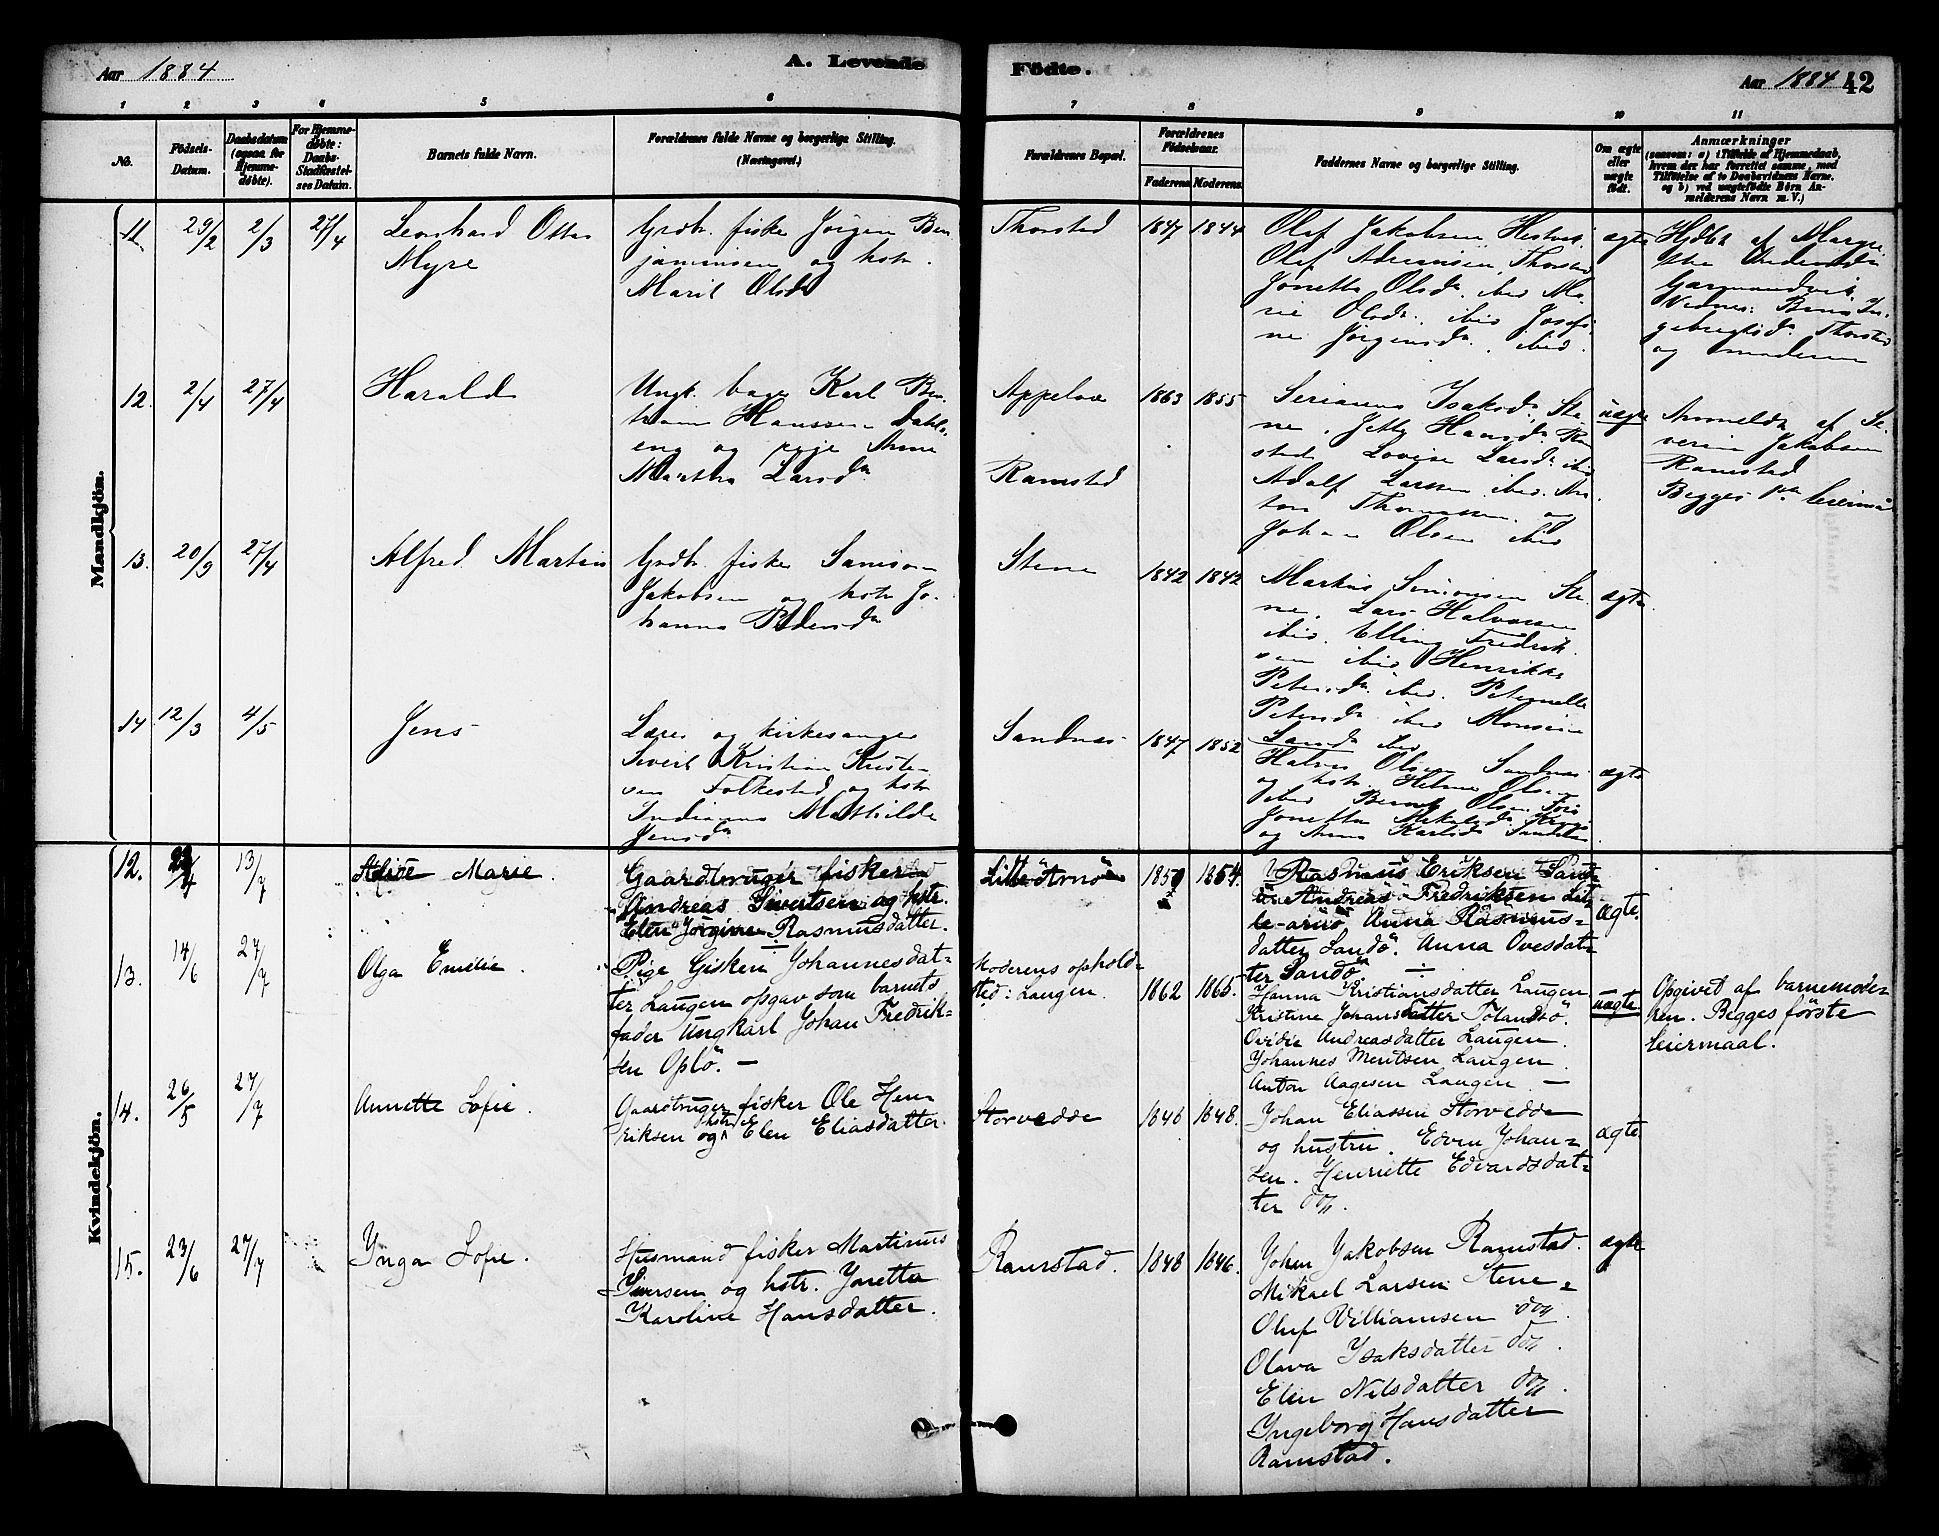 Aar 1884
A. Levende
Födte.
Aar 1884
42
1 2 3 4 5 6 7 8 9 10 11
No.
Födsels-
Datum.
Daabsdatum
(ogsaa for
Hjemme-
døbte).
For Hjemme-
døbte:
Daabs-
Stadfæstel-
ses Datum.
Barnets fulde Navn.
Forældrenes fulde Navne og borgerlige Stilling.
(Næringsvei.)
Forældrenes Bopæl.
Forældrenes
Födselsaar.
Faderens. Moderens.
Faddernes Navne og borgerlige Stilling.
Om ægte
eller
uægte
födt.
Anmærkninger
(saasom: a) i Tilfælde af Hjemmedaab,
hvem der har forrettet samme, med
Tilføielse af to Daabsvidners Navne.
og b) ved uægtefødte Börn An-
melderens Navn m. V.)
Mandkjön.
11. 29/2 2/3 27/4
Leonhard Otter
Myre
Grdbr. fisker Jørgen Ben
jaminsen og hstr.
Marit Olsdr
Thorstad
1847 1844
Olaf Jakobsen
Olaf Adriansen, Thorstad
Jonetta Olsdr. ibid Ma-
rie Olsdr. ibid Josefi
ne Jørgensdr. ibid.
ægte
Hjdbt. af Margre
the
Vidner: Berit In-
gebrigtsdr. Thorstad
og moderen
12. 2/4 27/4
Harald
Ungk. bager Karl
Hanssen Dahls-
eng og pige Anne
Martha Larsdr
Appelvær
Ramstad
1863 1855
Isaksdr. Ste
ne, Jette Hansdr. Ram
stad Lovise Larsdr. ibid
Adolf Larssen ibid. An-
ton Thomassen og
Johan Olsen ibid
uægte
Anmeldt af Se-
verin Jakobsen
Ramstad
Begges 1ste leierm
13. 20/3 27/4
Alfred Martin
Grdbr. fisker Samson
Jakobsen og hstr Jo-
hanna Pedersdr
Stene
1842 1842
Markus Simonsen Ste
ne, Lars Halvorsen
ibid. Elling Fredrik-
sen ibid Henrikke
Petersdr. ibid. Peternelle
Petersdr. ibid
ibid
ægte.
14 12/3 4/5
Jens
Lærer og kirkesanger
Sivert Kristian Kriste-
sen Folkestad og hstr
Indiana Mathilde
Jensdr
Sandnæs
1847 1852
Olsen Sandnæs
og hstr. Helene Olsen
ibid Bernt Olsen
Jonetta
og Anna Karlsdr
ægte
Kvindekjön.
12. 13/7
Marie.
Gaardbruger fisker
Andreas Sivertsen og hstr.
Elen Jörgine Rasmusdatter.
Lille Arnö
1854.
Rasmus Eriksen Sand
ö. Andreas Fredriksen Lil-
le-arnö Anna Rasmus-
datter Sandö. Anna Ovesdat-
ter Sandö. ÷
ægte.
13. 14/6 27/7
Olga Emilie.
Pige Gisken Johannesdat=
ter Laugen opgav som barnets
fader Ungkarl Johan Fredrik=
sen Oplö. —
Moderens ophold=
sted: Laugen.
1862 1865.
Hanna Kristiansdatter Laugen.
Kristine Johansdatter
Ovidie Andreasdatter Laugen.
Johannes Meritsen Laugen.
Anton Aagesen Laugen. —
uægte
Opgivet af barnemode-
ren. Begges förste
leiermaal.
14. 26/5 27/7
Annette Lofie.
Gaardbruger fisker Ole Hen-
riksen og hstr Elen Eliasdatter.
Storvedde
1846 1848.
Johan Eliassen Storvedde
og hustru. Edvin Johan=
sen. Henriette Edvardsdat=
ter do.
ægte.
15. 23/6 27/7
Ynga Lofie.
Husmand fisker Martinus
Iversen og hstr. Jonetta
Karoline Hansdatter.
Ramstad.
1848 1846.
Johan Jakobsen Ramstad.
Mikael Larsen Stene=
Oluf Villiamsen do.
Olava Ysaksdatter do.
Elen Nilsdatter do.
Yngeborg Hansdatter
Ramstad.
ægte